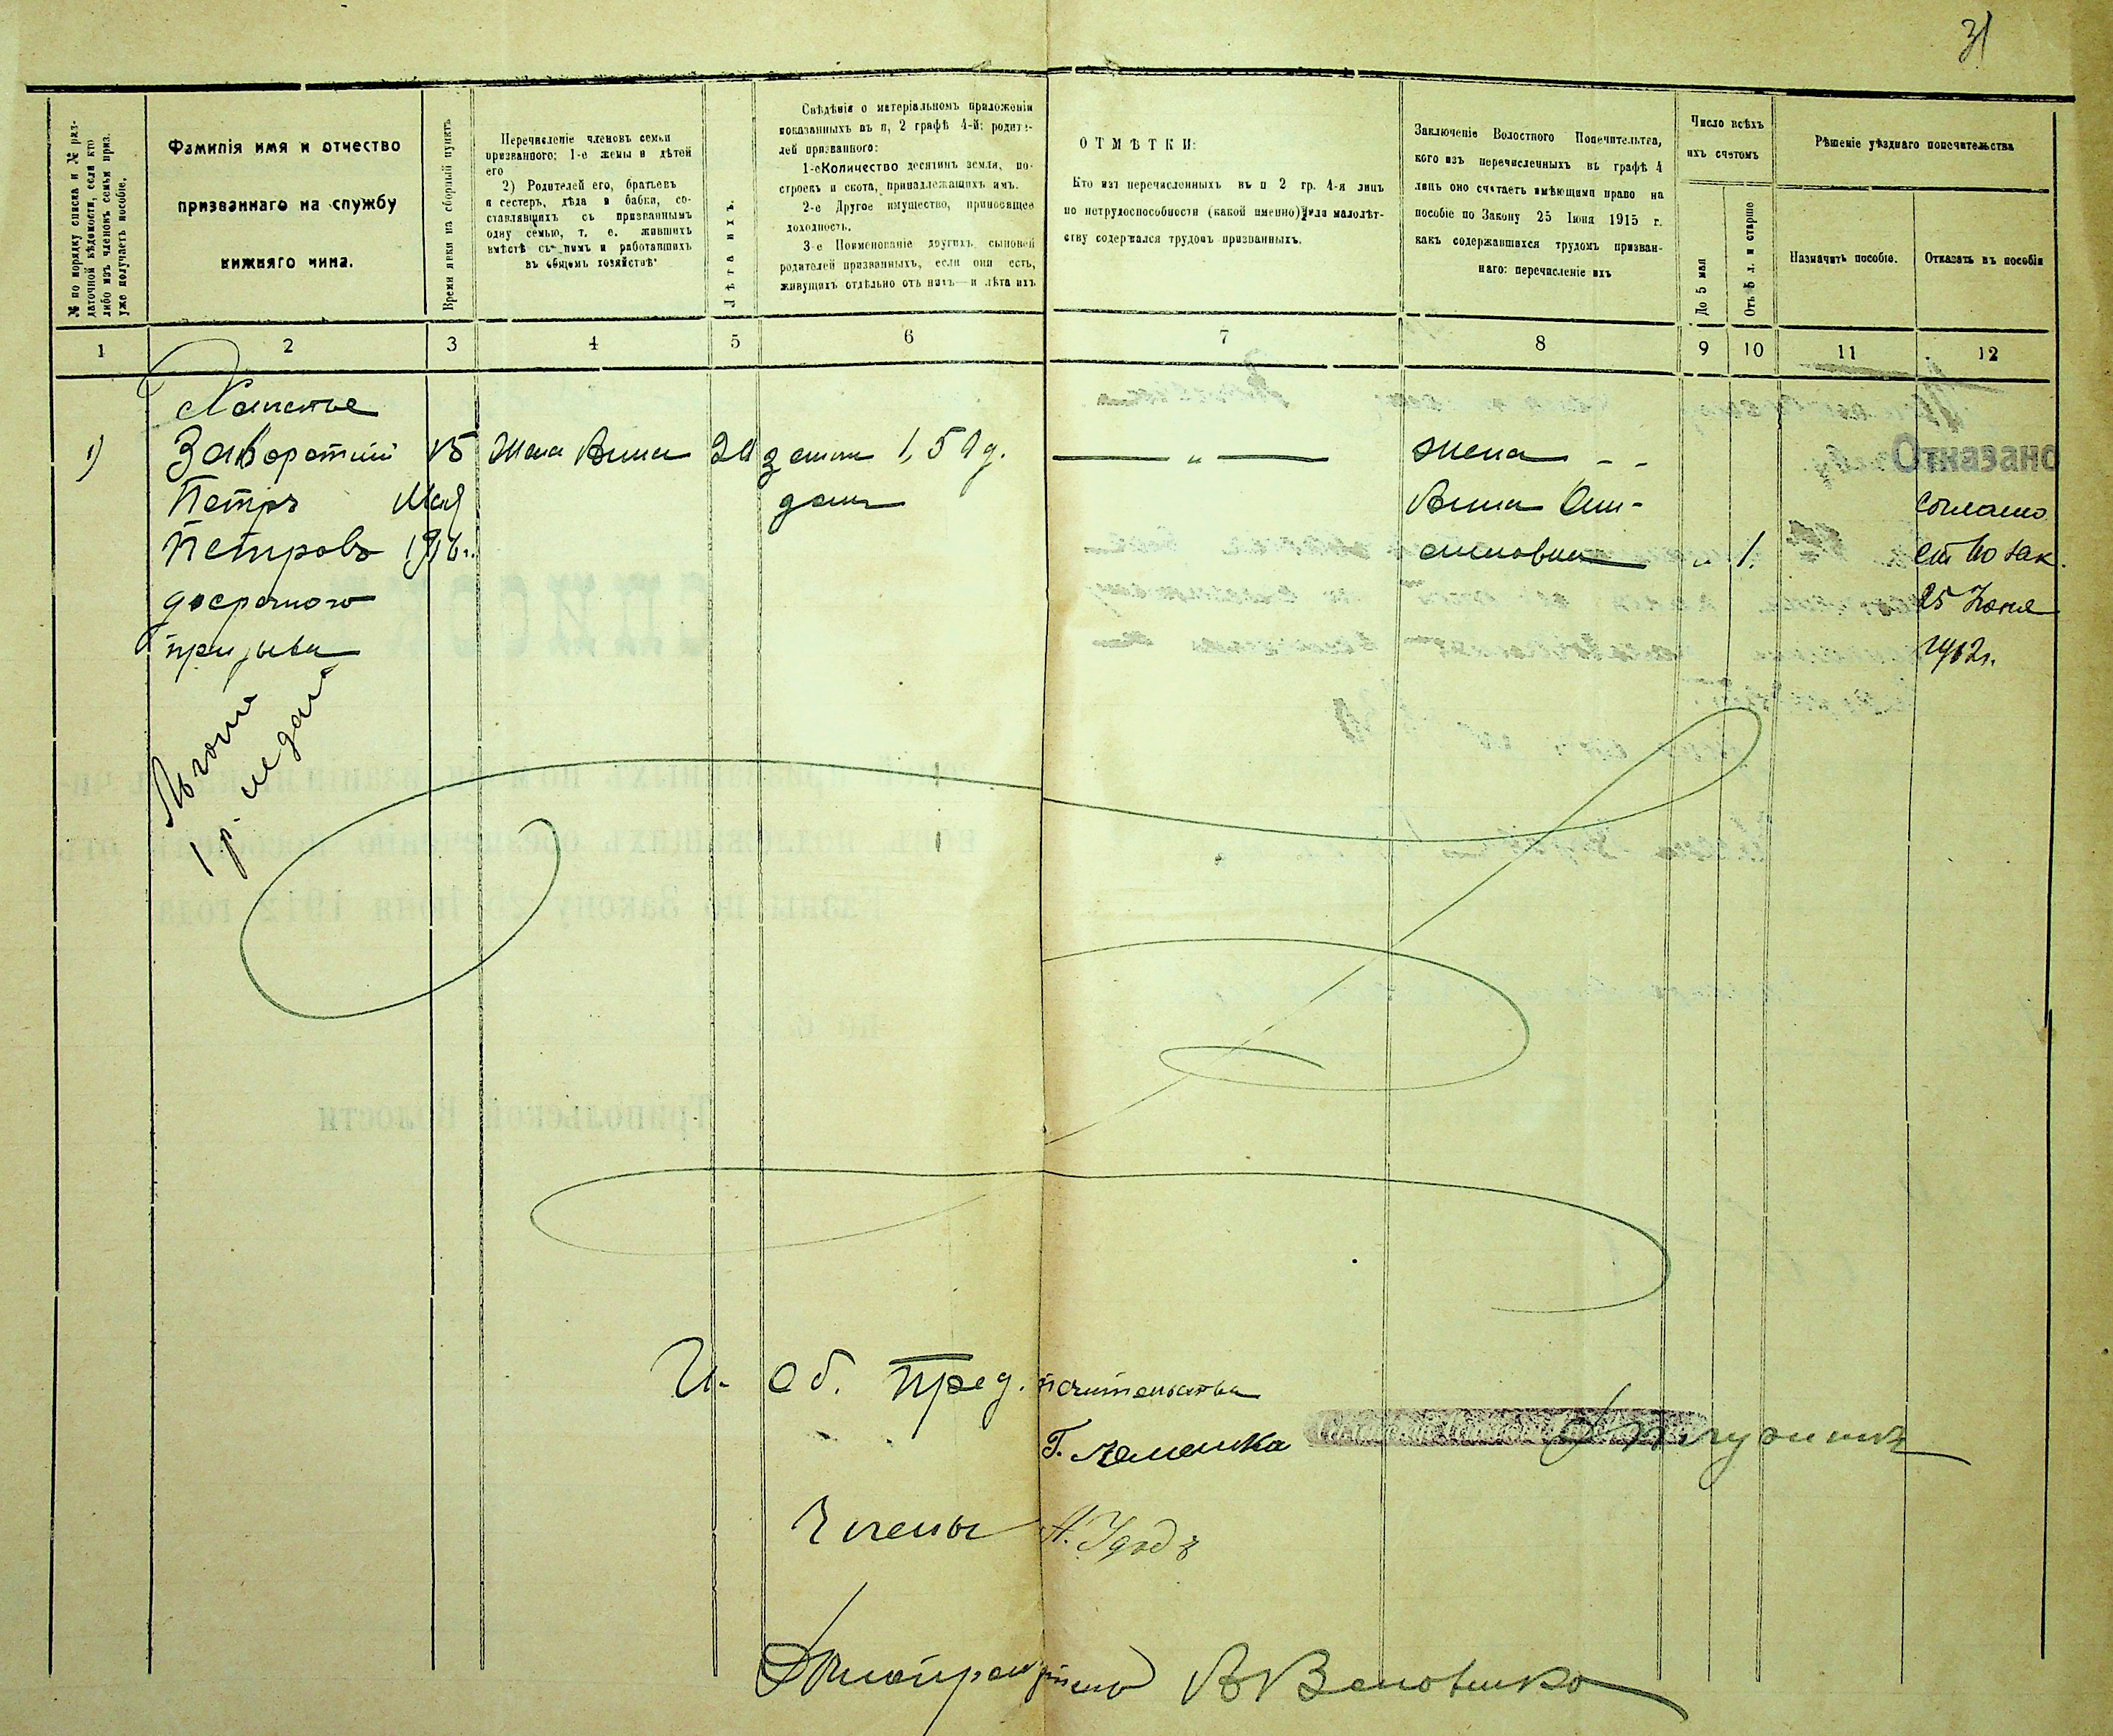 31
№ по порядку списка и № раз-
даточной вѣдомости, если кто
либо изъ членовъ семьи приз.
уже получаетъ пособіе.
Фамилія имя и отчество
призваннаго на службу
нижняго чина.
Время явки на сборный пунктъ
Перечисленіе членовъ семьи
призванного: 1-е жены и дѣтей
его
2) Родителей его, братьевъ
и сестеръ, дѣда и бабки, со-
ставлявшихъ съ призваннымъ
одну семью, т. е. жившихъ
вмѣстѣ съ нимъ и работавшихъ
въ общемъ хозяйствѣ
Лѣта ихъ.
Свѣдѣнія о матеріальномъ приложеніи
показанныхъ въ п, 2 графѣ 4-й: родите-
лей призванного:
1-е Количество десятинъ земли, по-
строекъ и скота, принадлежащихъ имъ.
2-е Другое имущество, приносящее
доходность.
3-е Поименованіе другихъ сыновей
родителей призванныхъ, если они есть,
живущихъ отдѣльно отъ нихъ—и лѣта ихъ
ОТМѢТКИ:
Кто изъ перечисленныхъ въ п 2 гр. 4-я лицъ
по нетрудоспособности (какой именно) или малолѣт-
ству содержался трудомъ призванныхъ.
Заключеніе Волостного Попечительтва,
кого изъ перечисленныхъ въ графѣ 4
лицъ оно считаетъ имѣющими право на
пособіе по Закону 25 Іюня 1915 г.
какъ содержавшихся трудомъ призван-
наго: перечисленіе ихъ
Число всѣхъ
ихъ счетомъ
До 5 мая
Отъ 5 л. и старше
Рѣшеніе уѣзднаго попечительства
Назначить пособіе.
Отказать въ пособіи
1 2 3 4 5 6 7 8 9 10 11 12
1) Заворотній 15 Жена Анна 20 земли 1,50 д. — „ — жена - - Отказано
Петръ Мая домъ Анна
Петровъ 1916 г. „ 1. ст 10 зак.
досрочного 25 Іюня
призыва 1912 г.
Льготы
1 р. не дано
И. Об. Пред. попечительства
Г.
Члены А. Удодъ